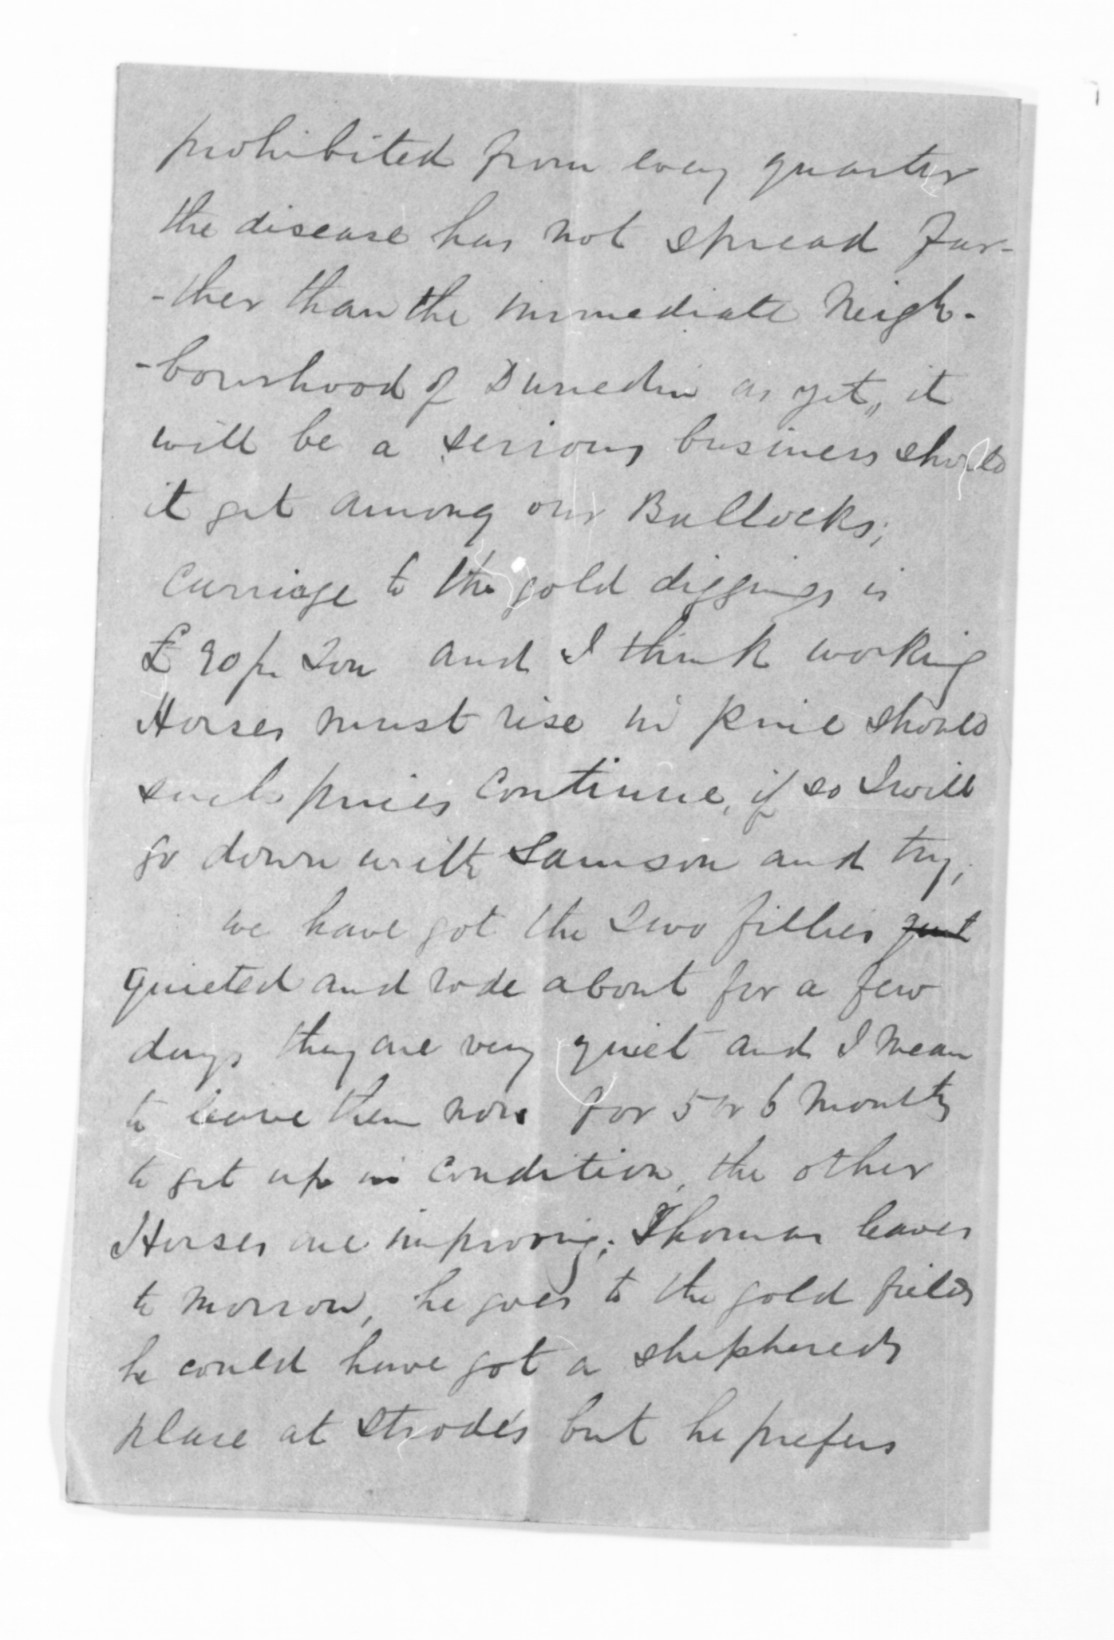 prohibited from every quarter
the disease has not spread fur-
-ther than the immediate Neigh-
-bourhood of Dunedin as yet,, it
will be a serious business should
it get among our Bullocks;
Carriage to the gold diggings is
£90 pr Ton and I think working
Horses must rise in price should
such prices Continue, if so I will
go down with Samson and try;
we have got the Two fillies
quieted and rode about for a few
days they are very quiet and I mean
to leave them now for 5 or 6 Months
to get up in Condition, the other
Horses are improving; Thomas leaves
to morrow, he goes to the gold fields
he could have got a shepherds
place at Strode's but he prefers